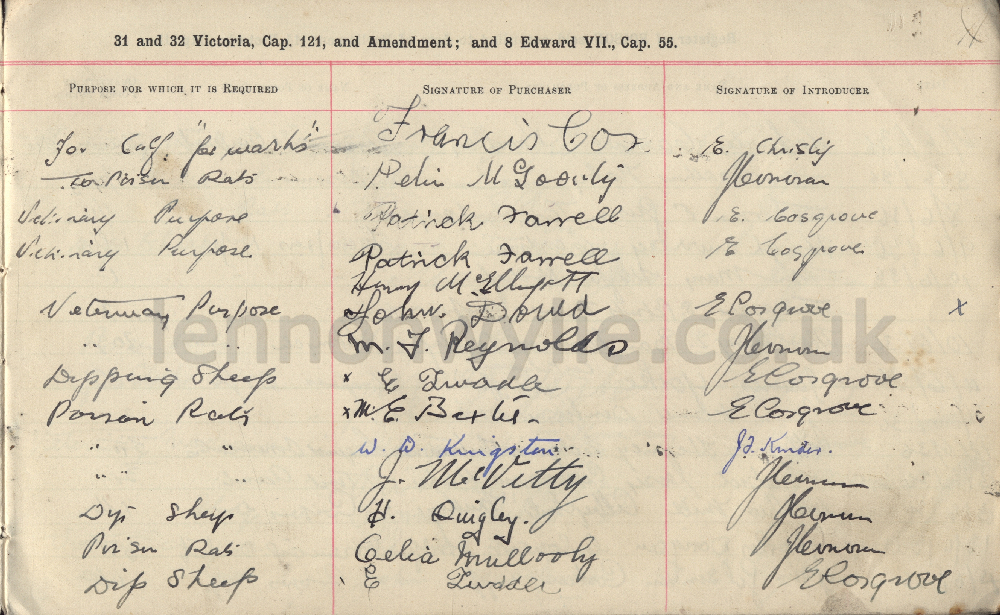 31 and 32 Victoria, Cap. 121, and Amendment; and 8 Edward VII., Cap. 55.
Purpose for which it is Required Signature of Purchaser Signature of Introducer
For Calf "for warts" Francis Cox E. Christy
For Poison Rats
Purpose Patrick Farrell E. Cosgrove
Purpose Patrick Farrell E Cosgrove
Henry McElligott
Veterinary Purpose John Dowd ECosgrove x
" " M. J. Reynolds
Dipping Sheep x E Twaddle ECosgrove
Poison Rats x M. E. ECosgrove
" " W. D. Kingston
" " J. McVitty
Dip Sheep H. Quigley.
Poison Rats Celia Mullooly
Dip Sheep E Twaddle ECosgrove
lennonwylie.co.uk